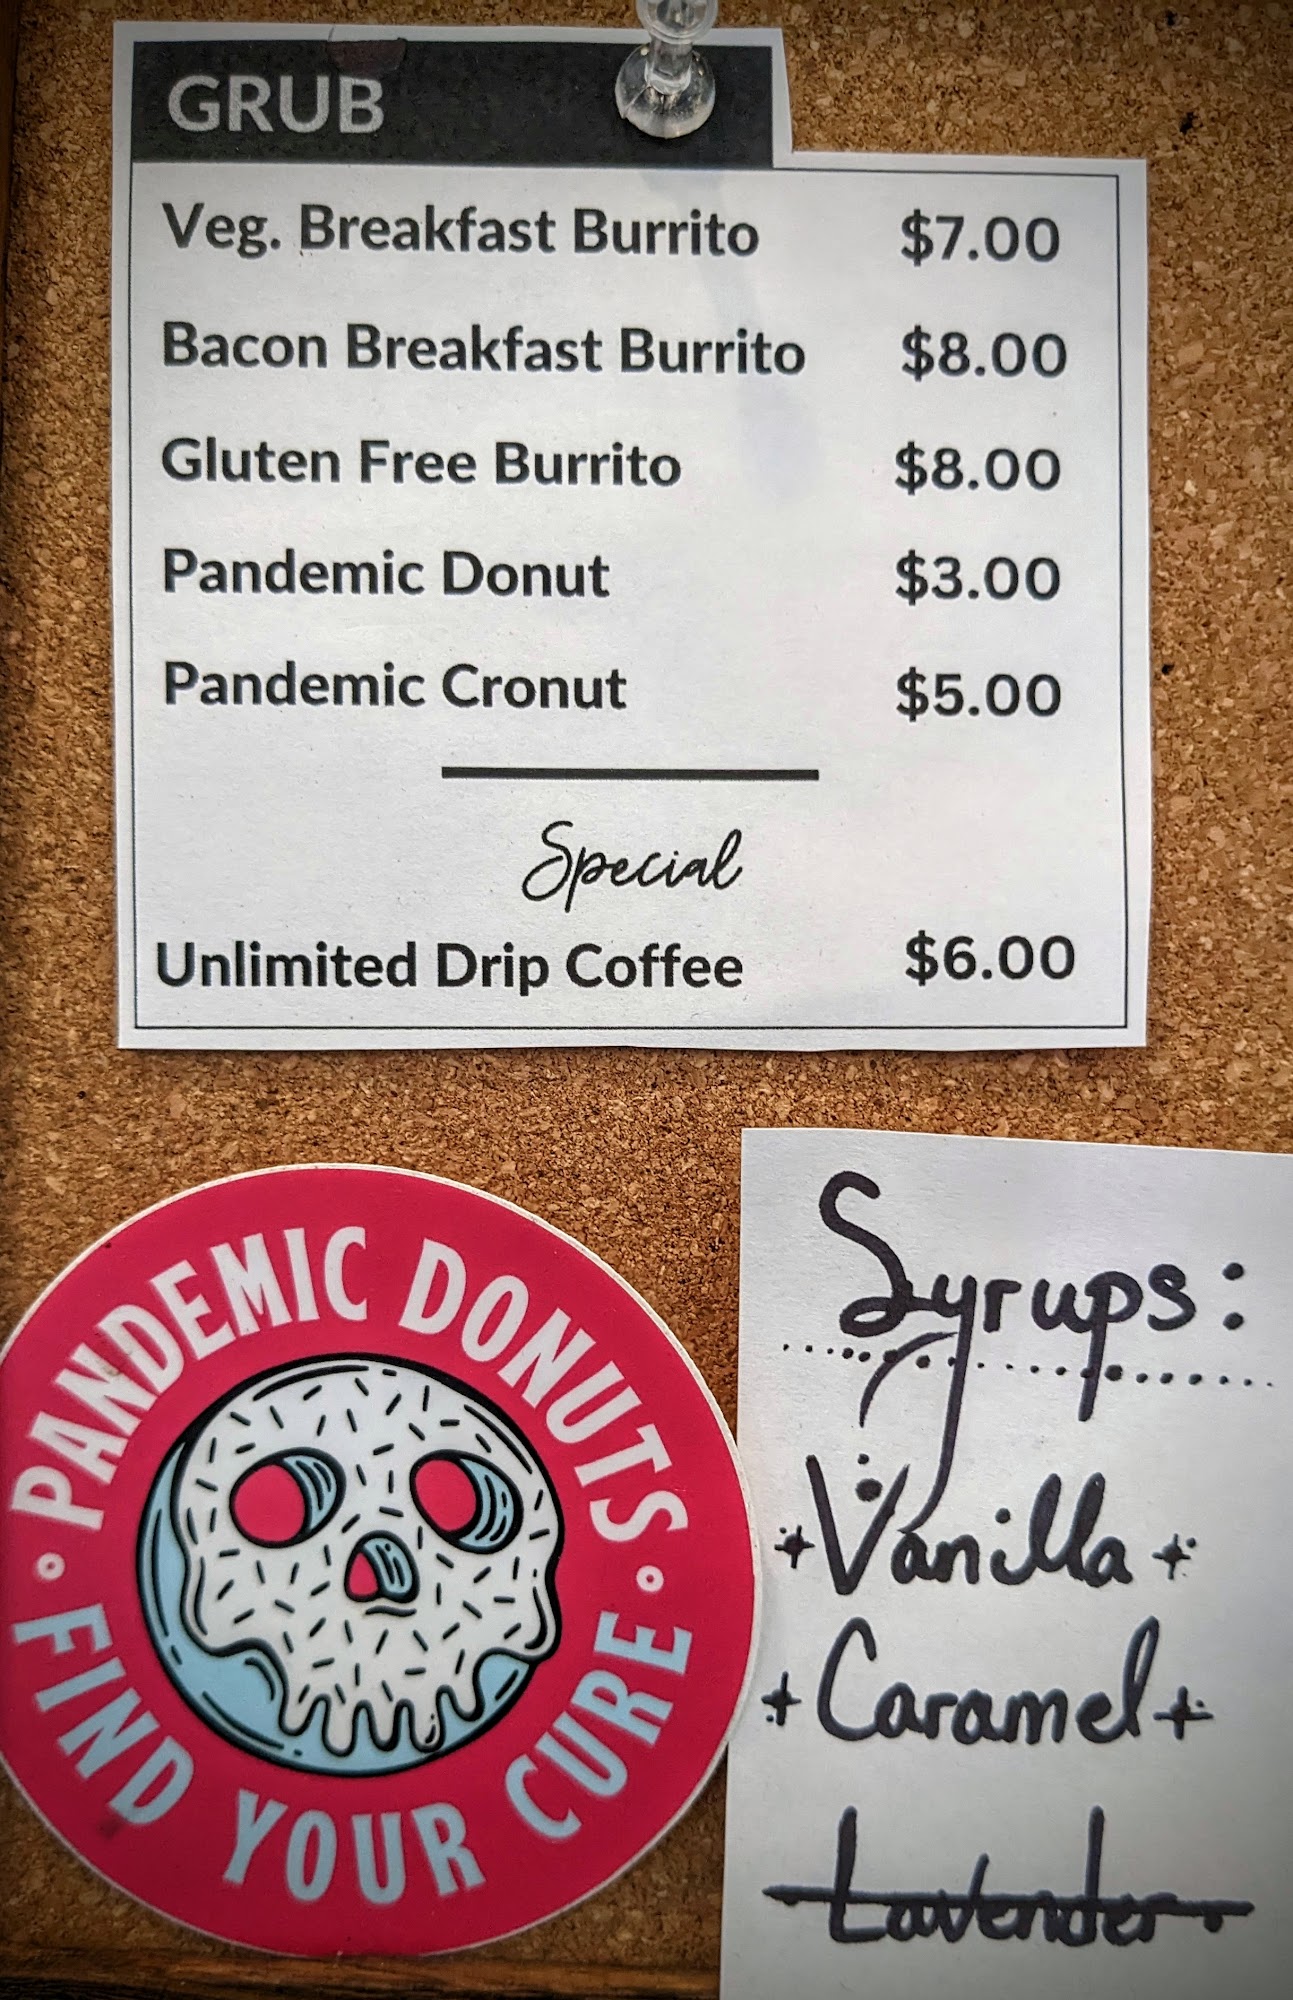 GRUB
Veg. Breakfast Burrito $7.00
Bacon Breakfast Burrito $8.00
Gluten Free Burrito $8.00
Pandemic Donut $3.00
Pandemic Cronut $5.00
Special
Unlimited Drip Coffee $6.00
PANDEMIC DONUTS
FIND YOUR CURE
Syrups:
Vanilla
Caramel
Lavender